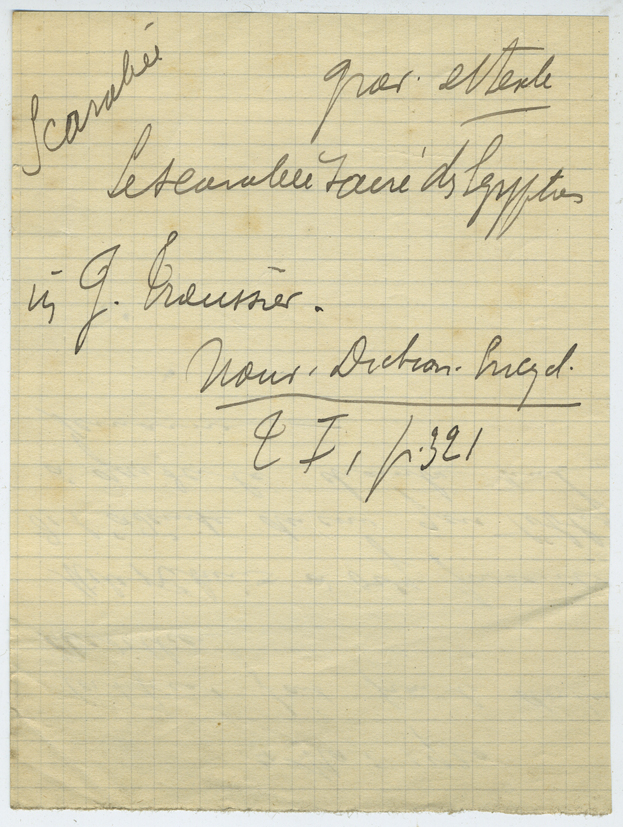 Scarabée
grav. et texte
Le scarabée sacré des Egyptiens
in J. Trousset.
Nouv. Diction. Encycl.
T I, p. 321